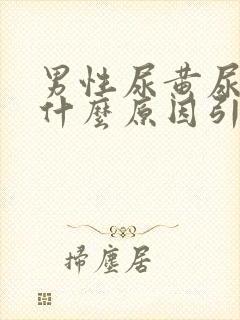 男性尿黃尿
什麼原因引
掃塵居